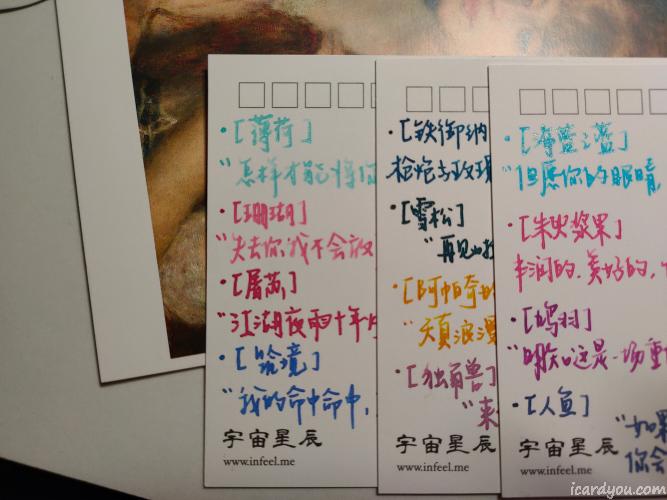 ·[薄荷]
"怎样才能将你
·[珊瑚]
"失去你,我不会放
·[屠苏]
"江湖夜雨十年
·[哈境]
"我的命中命中,
宇宙星辰
www.infeel.me
·[铁御纳
枪炮与玫瑰
·[雪松]
"再见
·[阿帕奇
"天真浪漫
·[独角兽]
"来
宇宙星辰
www.infeel.me
·[海蓝之蓝]
"但愿你的眼睛,
·[朱火浆果]
丰润的.美好的,
·[鸩羽]
"明知这是一场重
·[人鱼]
"如果
你会
宇宙星辰
www.infeel.me
icardyou.com